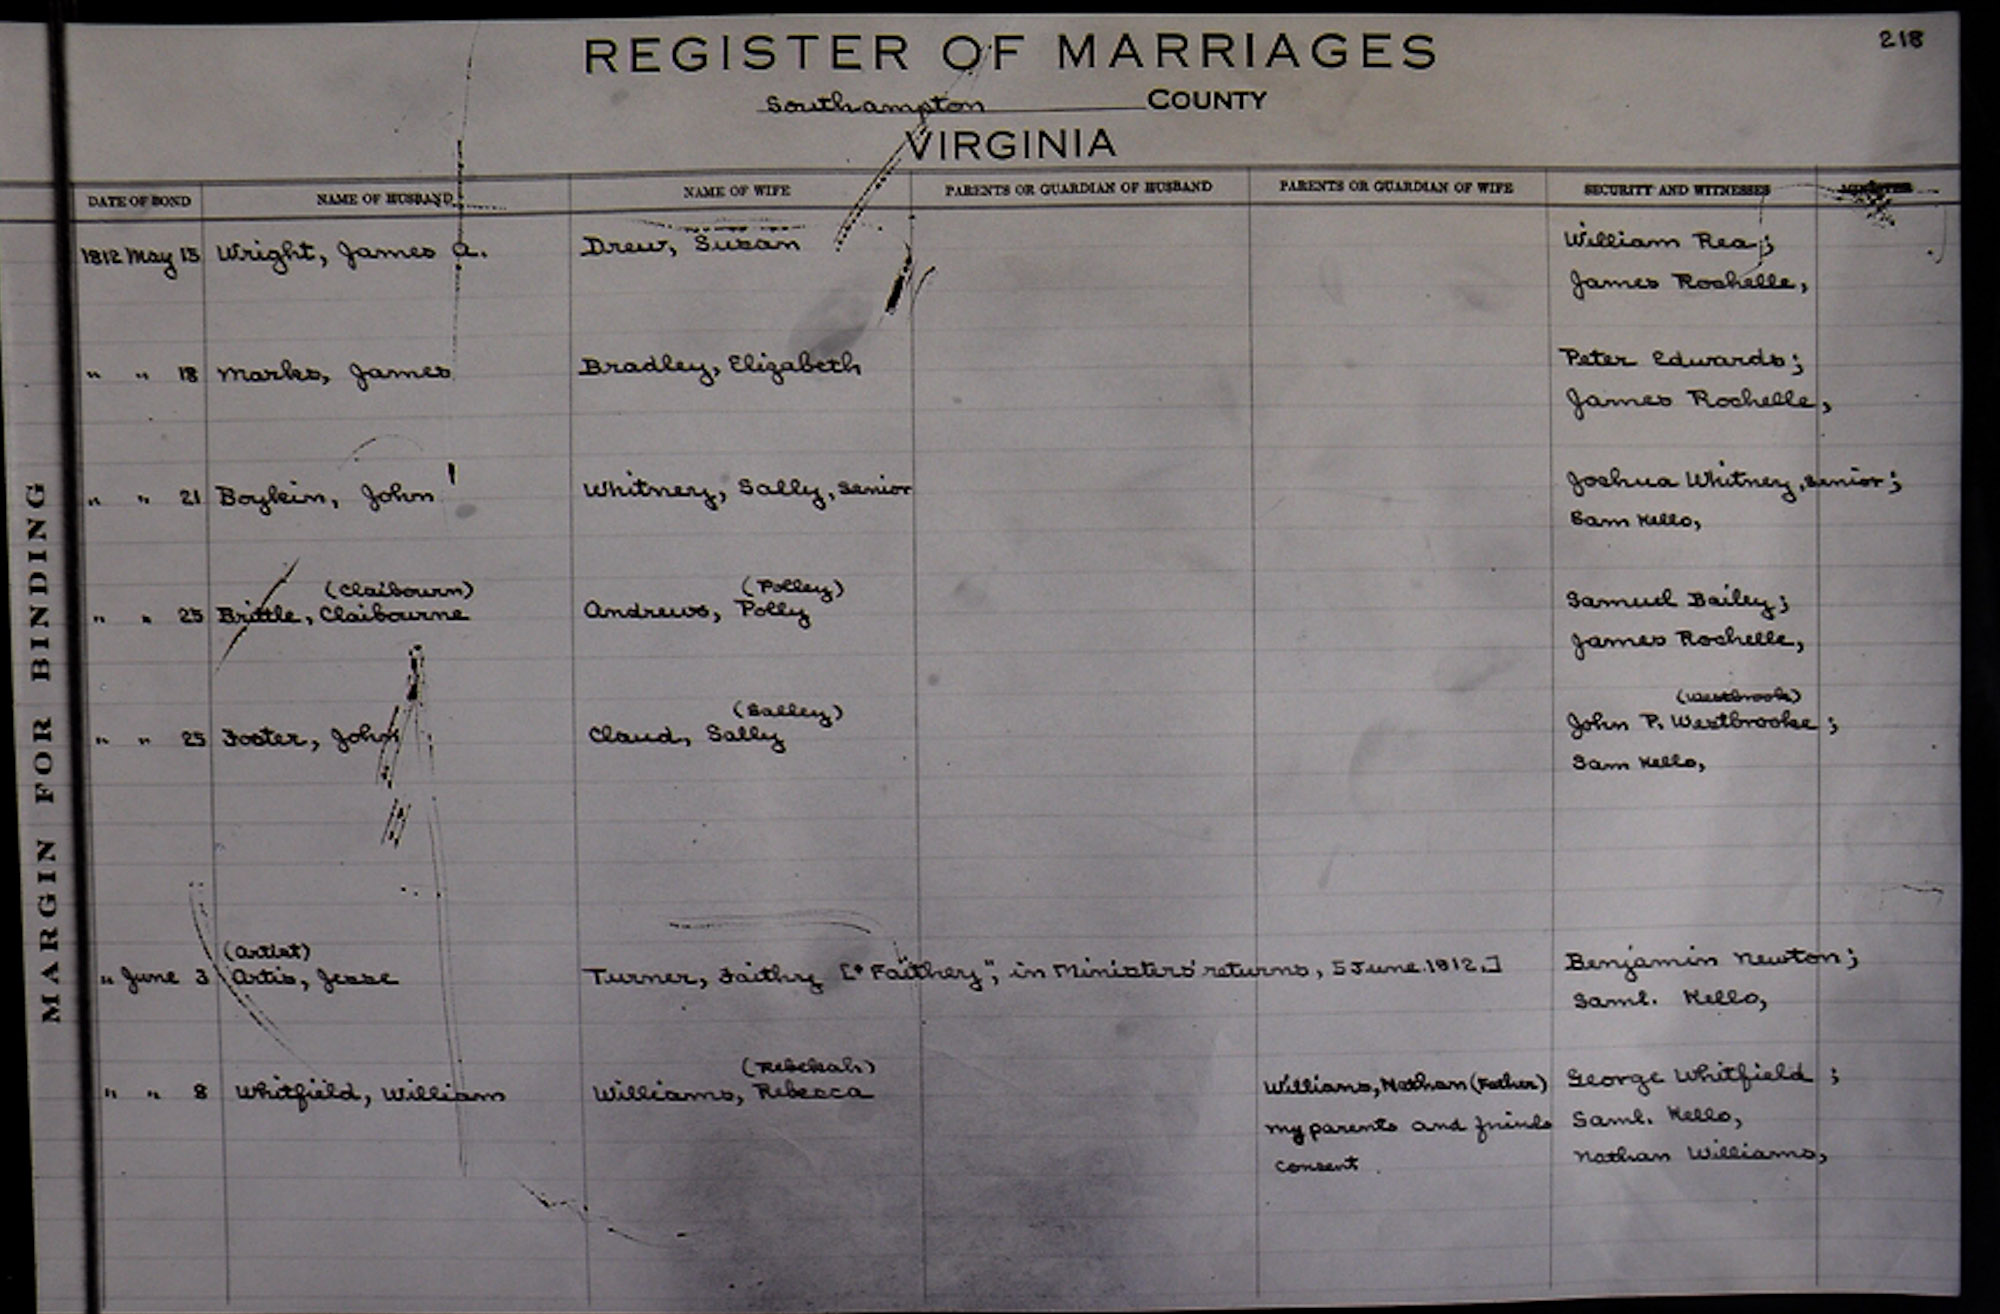 218
REGISTER OF MARRIAGES
Southampton COUNTY
VIRGINIA
MARGIN FOR BINDING
DATE OF BOND NAME OF HUSBAND NAME OF WIFE PARENTS OR GUARDIAN OF HUSBAND PARENTS OR GUARDIAN OF WIFE SECURITY AND WITNESSES MINISTER
1812 May 15 Wright, James A. Drew, Susan William Rea;
James Rochelle,
" " 18 Marks, James Bradley, Elizabeth Peter Edwards;
James Rochelle,
" " 21 Boykin, John Whitney, Sally, Senior Joshua Whitney, Senior;
Sam Kello,
(Claibourn) (Polley)
" " 25 Brittle, Claibourne Andrews, Polly Samuel Bailey;
James Rochelle,
(Salley) (Westbrook)
" " 25 Foster, John Claud, Sally John P. Westbrooke;
Sam Kello,
(Artist)
" June 3 Artis, Jesse Turner, Faithy ["Faithey", in Ministers' returns, 5 June 1812.] Benjamin Newton;
Saml. Kello,
(Rebekah)
" " 8 Whitfield, William Williams, Rebecca Williams, Nathan (Father) George Whitfield;
my parents and friends Saml. Kello,
consent. Nathan Williams,